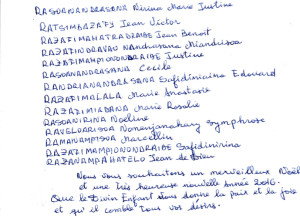 RASOANANDRASANA Ririna Marie Justine
RATSIMBAZAFY Jean Victor
RAZAFIMAHATRADRAIBE Jean Benoit
RAZAFINDRAVAO Nandrasana
RAZAFIMAMPIONONDRAIBE Justine
RASOANANDRASANA Cecile
RANDRIANANDRASANA Safidiniaina Edouard
RAZAFIMALALA Marie Anastasie
RAZAFIMIADANA Marie Rosalie
RASOANIRINA Noelline
RAVELOARISOA Nomenjanahary Symphrose
RAMANAMPISOA Marcellin
RAZAFIMAMPIONONDRAIBE Safidinirina
RAZANAMPAHATELO Jean de Dieu
Nous vous souhaitons un merveilleux Noël
et une très heureuse nouvelle année 2016.
Que le Divin Enfant vous donne la paix et la joie
et qu'il comble tous vos désirs.